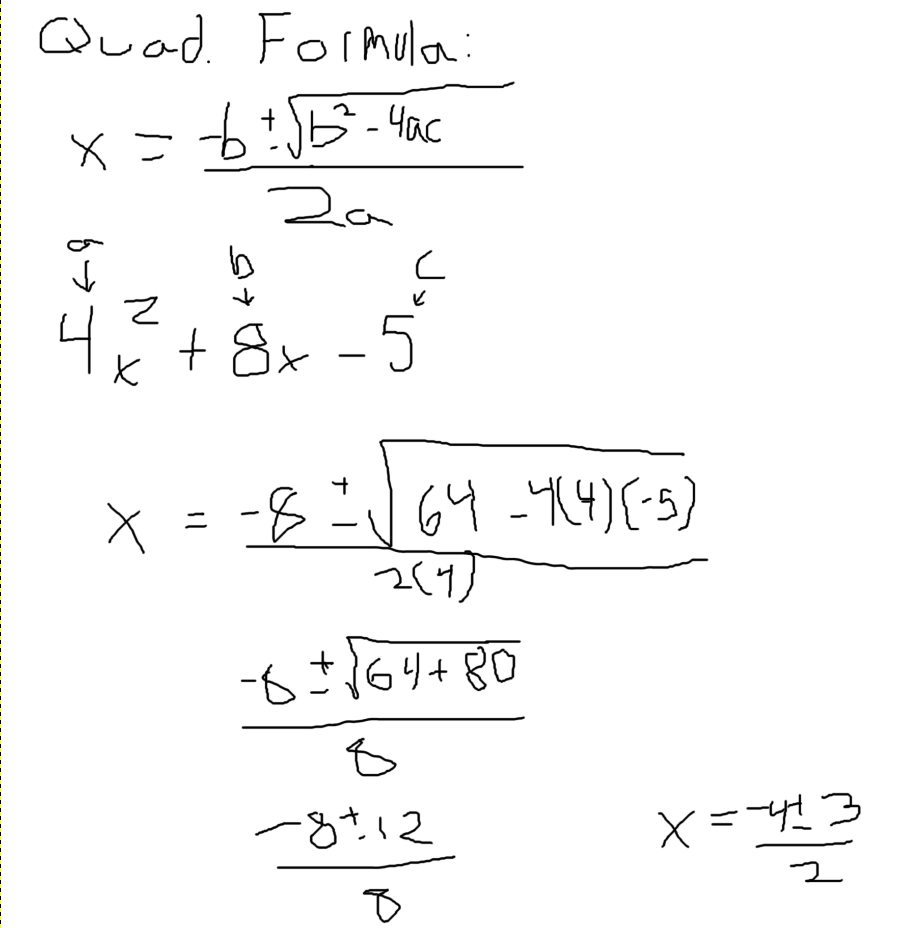 Quad. Formula:
x = -b ± √(b² - 4ac)
2a
a b c
↓ ↓ ↙
4x² + 8x - 5
x = -8 ± √(64 - 4(4)(-5))
2(4)
-8 ± √(64 + 80)
8
-8 ± 12
8
x = -4 ± 3
2